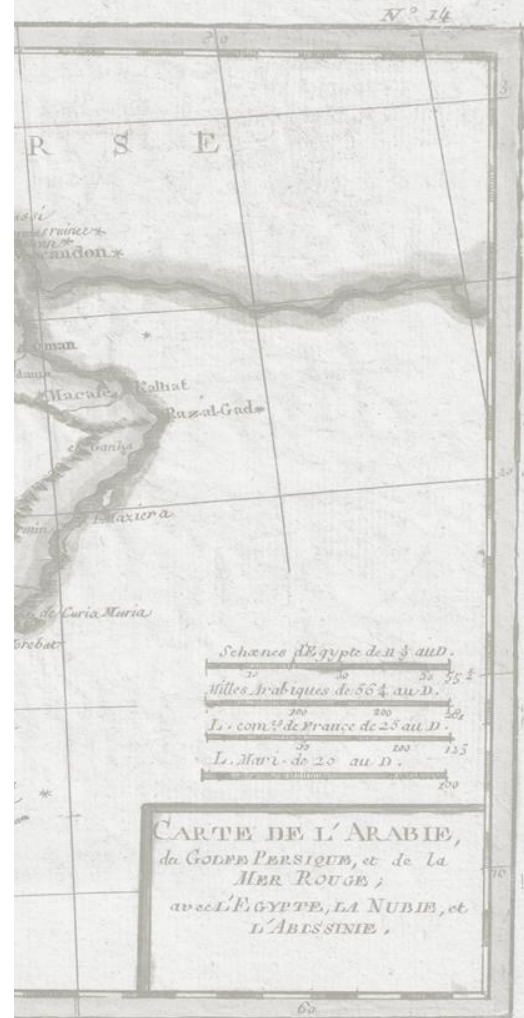 N° 14
R S E
Oman
Macate
Kalhat
Raz-al-Gad
I. Maziera
de Curia Muria
Schœnes d'Egypte de 11 ⅕ au D.
Milles Arabiques de 56 ¼ au D.
100 200 281
L. com.es de France de 25 au D.
50 100 125
L. Mari. de 20 au D.
100
CARTE DE L'ARABIE,
du GOLFE PERSIQUE, et de la
MER ROUGE ;
avec L'EGYPTE, LA NUBIE, et
L'ABISSINIE .
10
60